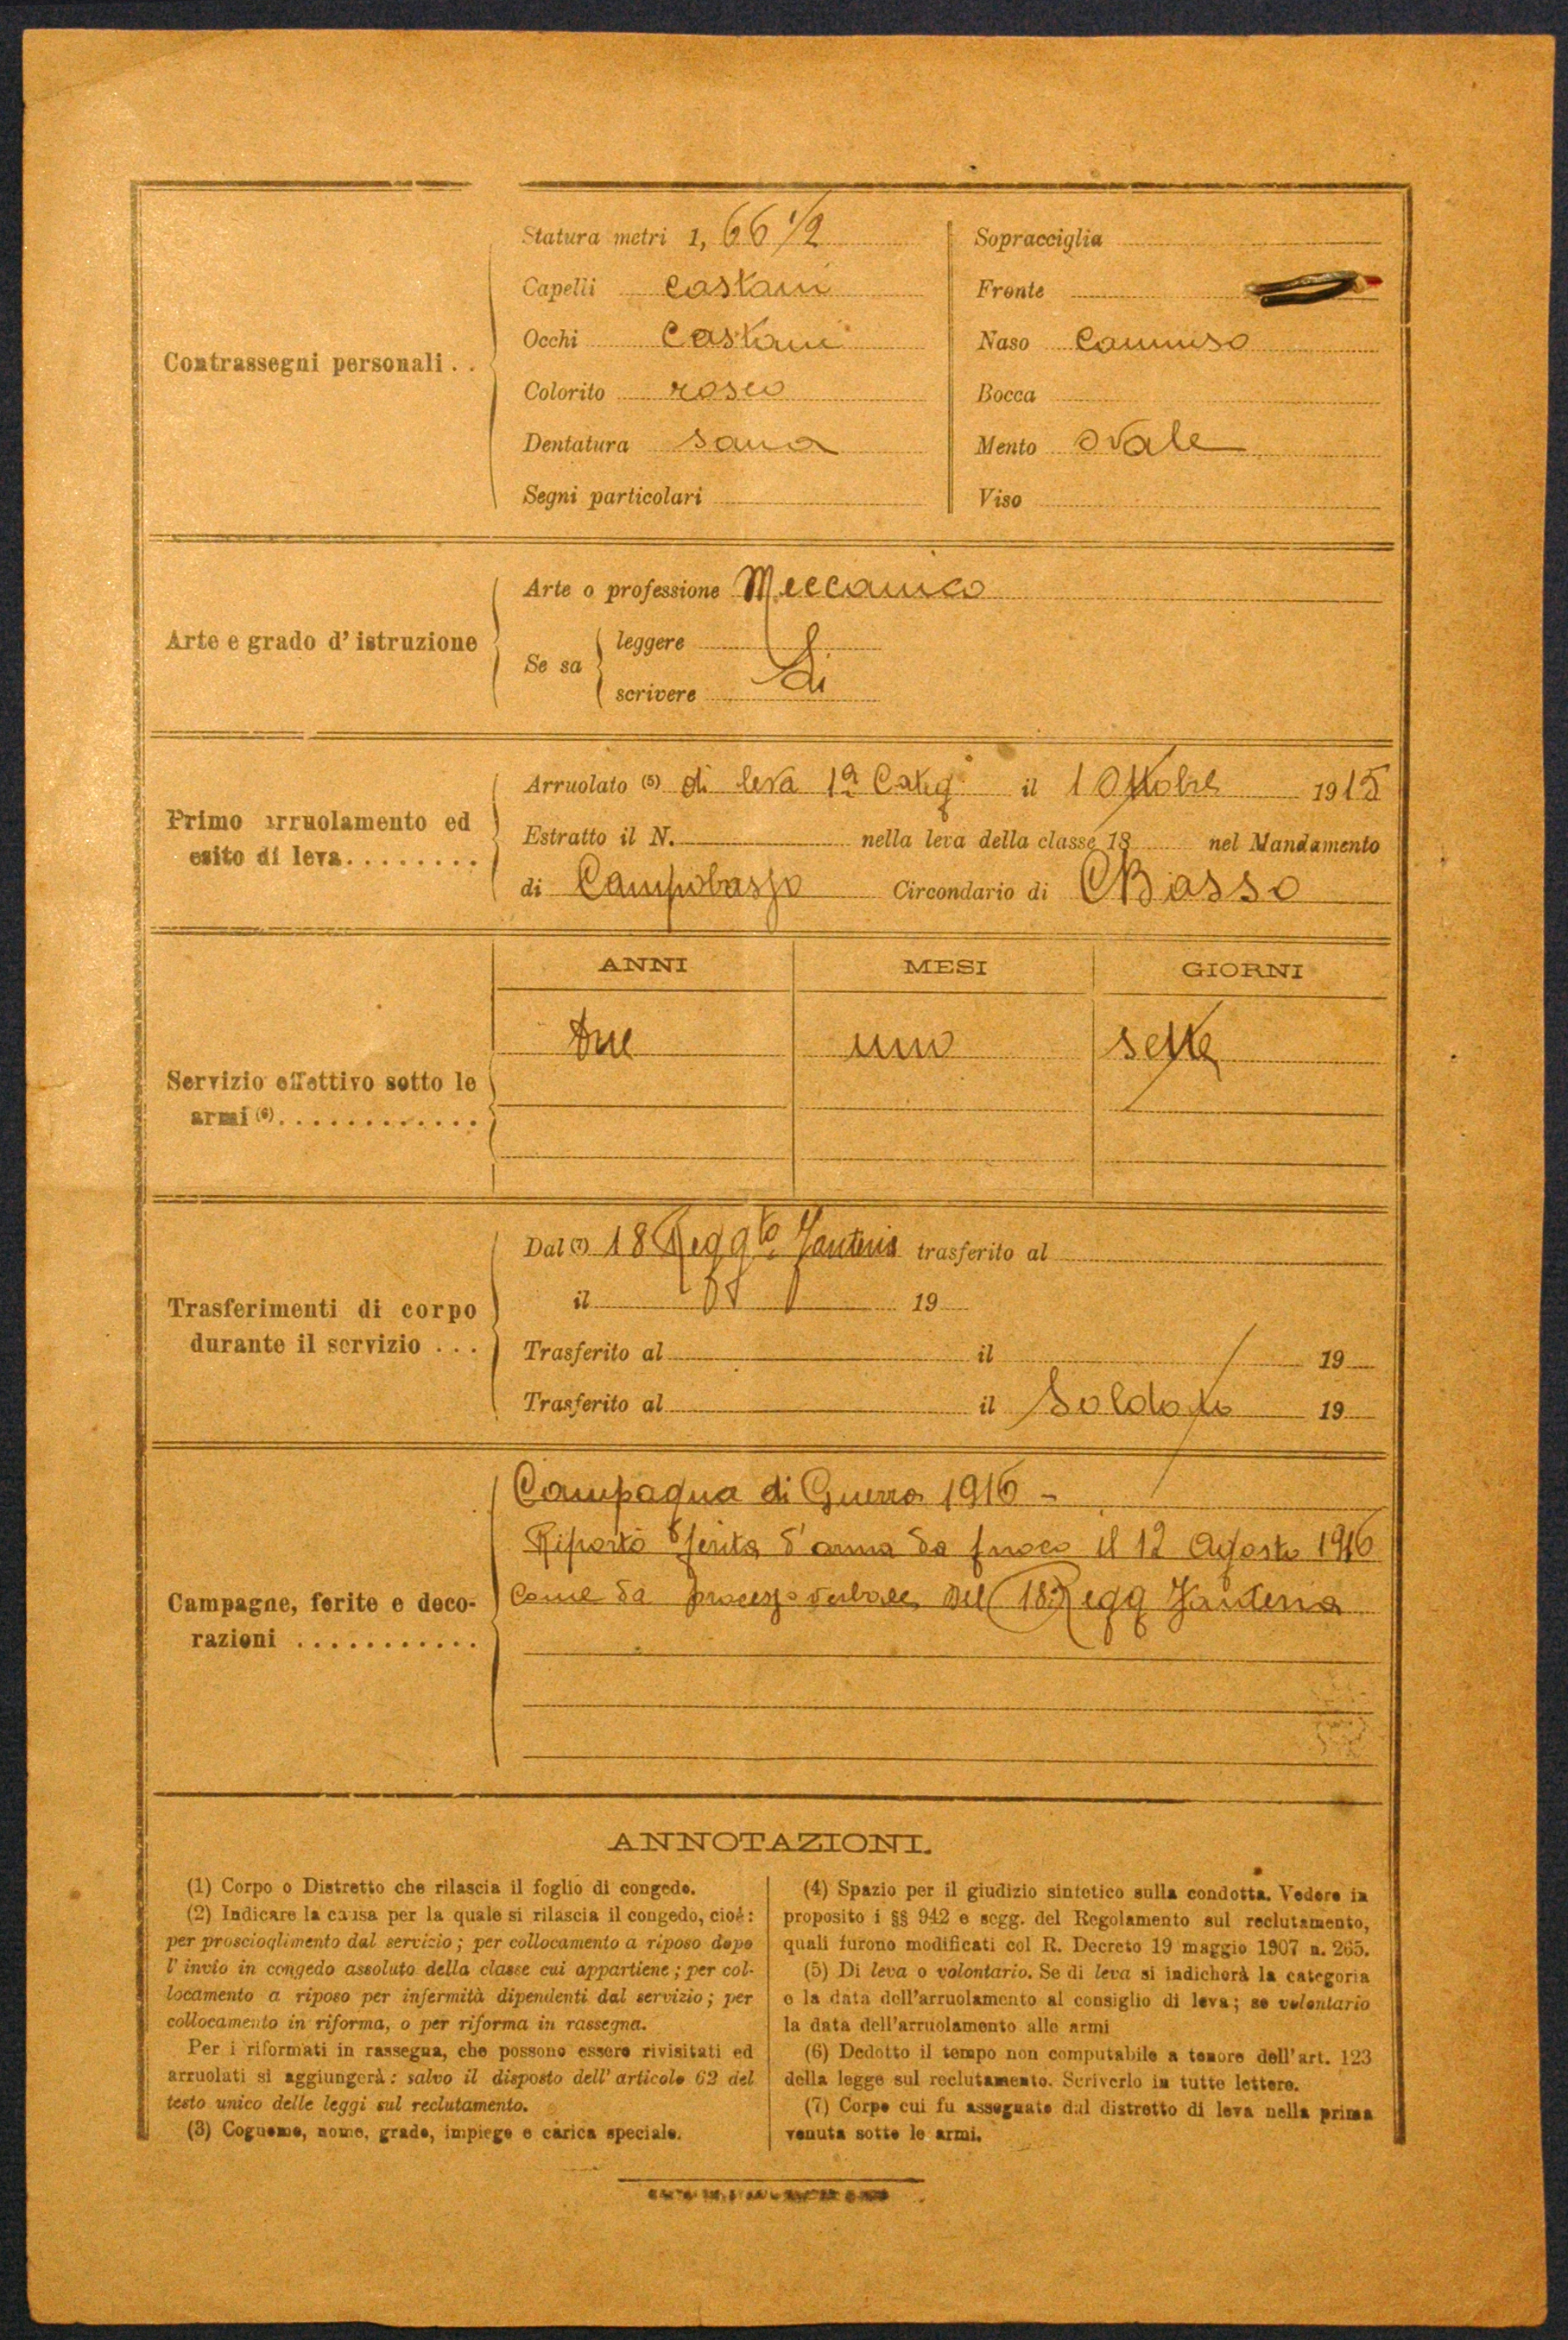 Statura metri 1, 66 1/2
Capelli castani
Occhi castani
Colorito roseo
Dentatura sana
Segni particolari
Sopracciglia
Fronte
Naso camuso
Bocca
Mento ovale
Viso
Contrassegni personali . .
Arte e grado d' istruzione
Arte o professione Meccanico
Se sa
leggere
scrivere
Si
Primo arruolamento ed
esito di leva . . . . . . . .
Arruolato (5) di leva 1ª Categ. il 1 Ottobre 1915
Estratto il N. nella leva della classe 18 nel Mandamento
di Campobasso Circondario di CBasso
Servizio effettivo sotto le
armi (6) . . . . . . . . . . . .
ANNI MESI GIORNI
due uno sette
Trasferimenti di corpo
durante il servizio . . .
Dal (7) 18 Reggto Fanteria trasferito al
il 19
Trasferito al il 19
Trasferito al il Soldato 19
Campagne, ferite e deco-
razioni . . . . . . . . . . .
Campagna di Guerra 1916 -
Riportò ferita d'arma da fuoco il 12 Agosto 1916
come da processo verbale del 18º Regg Fanteria
ANNOTAZIONI.
(1) Corpo o Distretto che rilascia il foglio di congedo.
(2) Indicare la causa per la quale si rilascia il congedo, cioè:
per proscioglimento dal servizio; per collocamento a riposo dopo
l' invio in congedo assoluto della classe cui appartiene; per col-
locamento a riposo per infermità dipendenti dal servizio; per
collocamento in riforma, o per riforma in rassegna.
Per i riformati in rassegna, che possono essere rivisitati ed
arruolati si aggiungerà: salvo il disposto dell' articolo 62 del
testo unico delle leggi sul reclutamento.
(3) Cognome, nome, grado, impiego e carica speciale.
(4) Spazio per il giudizio sintetico sulla condotta. Vedere in
proposito i §§ 942 e segg. del Regolamento sul reclutamento,
quali furono modificati col R. Decreto 19 maggio 1907 n. 265.
(5) Di leva o volontario. Se di leva si indicherà la categoria
e la data dell'arruolamento al consiglio di leva; se volontario
la data dell'arruolamento alle armi
(6) Dedotto il tempo non computabile a tenore dell'art. 123
della legge sul reclutamento. Scriverlo in tutte lettere.
(7) Corpo cui fu assegnato dal distretto di leva nella prima
venuta sotto le armi.